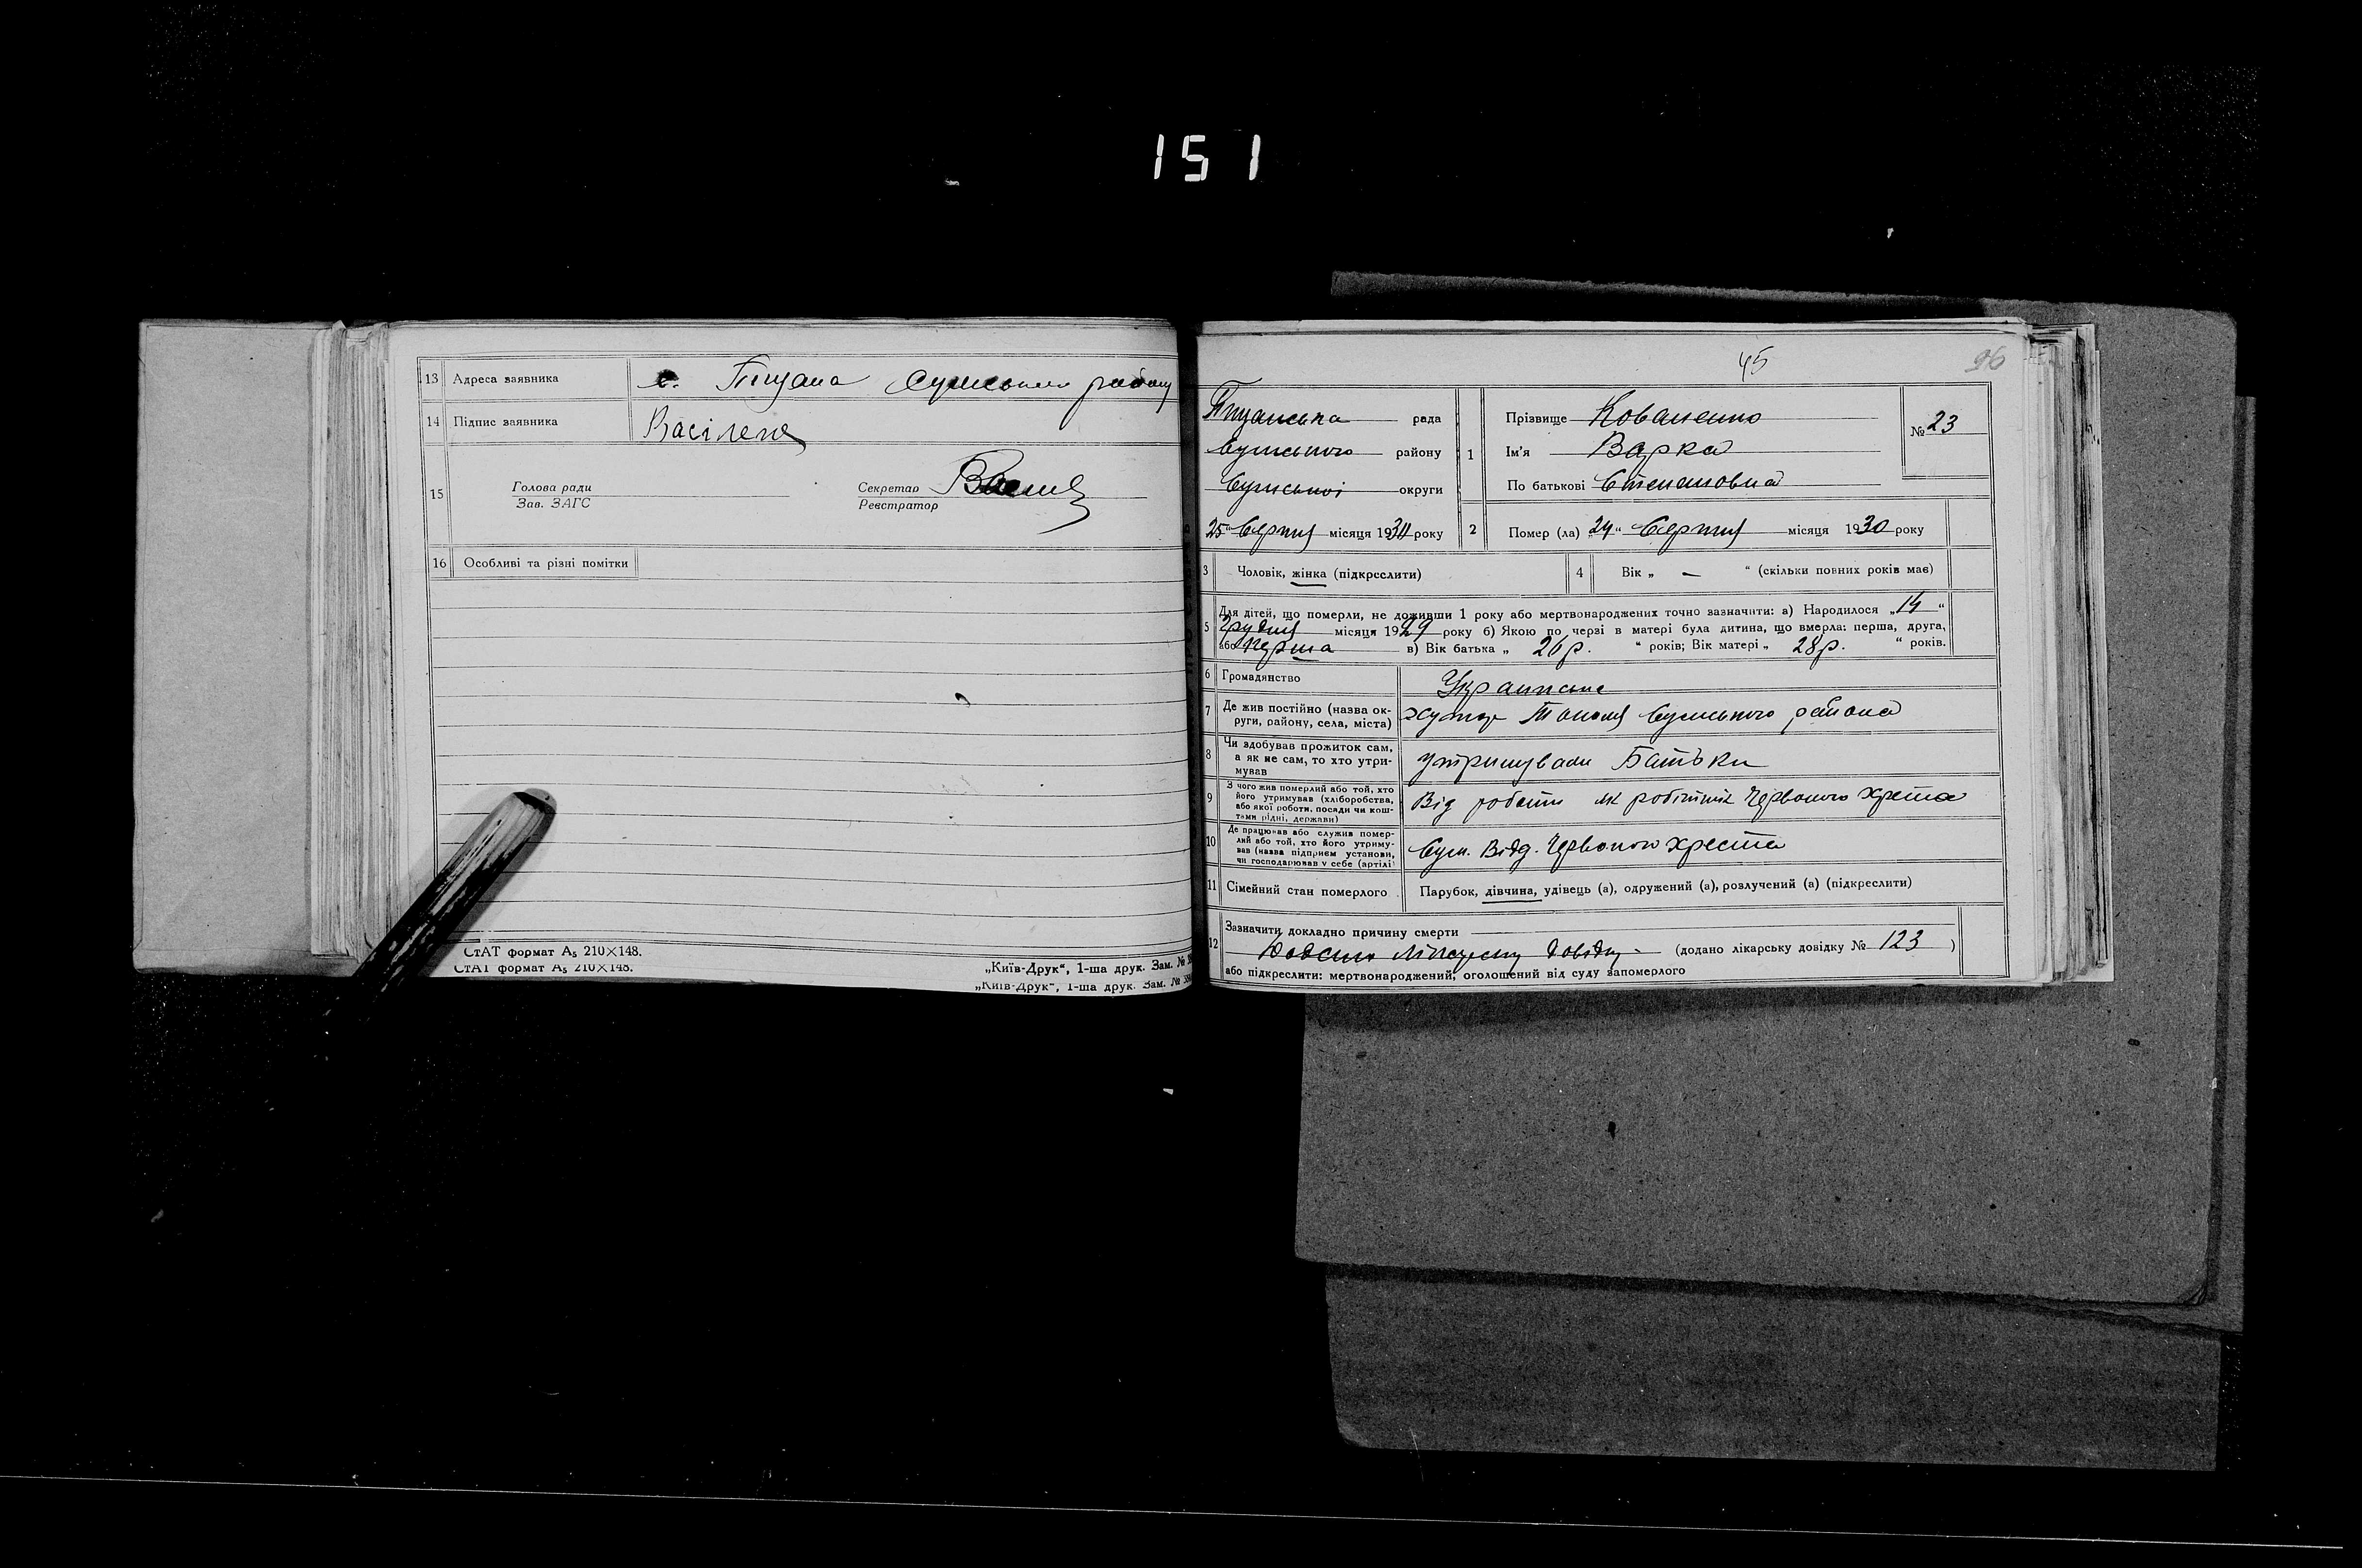 151
13 Адреса заявника с. Піщана Сумського району
14 Підпис заявника Васілене
15 Голова ради
Зав. ЗАГС
Секретар
Реєстратор
16 Особливі та різні помітки
СтАТ формат А5 210×148.
СтАТ формат А5 210×148.
„Київ-Друк“, 1-ша друк. Зам. №
„Київ-Друк“, 1-ша друк. Зам. №
45
96
Піщанська рада
Сумського району
Сумської округи
25 “ Серпня місяця 1930 року
1 Прізвище Коваленко
Ім'я Варка
По батькові Степановна
№ 23
2 Помер (ла) „24“ Серпня місяця 1930 року
3 Чоловік, жінка (підкреслити)
4 Вік „ — “ (скільки повних років має)
5 Для дітей, що померли, не доживши 1 року або мертвонароджених точно зазначити: а) Народилося „14“
Грудня місяця 1929 року б) Якою по черзі в матері була дитина, що вмерла: перша, друга,
або перша в) Вік батька „ 26 р. “ років; Вік матері „ 28 р. “ років.
6 Громадянство Украінське
7 Де жив постійно (назва ок-
руги, району, села, міста) хутор Тополя Сумського района
8 Чи здобував прожиток сам,
а як не сам, то хто утри-
мував утримували Батьки
9 З чого жив померлий або той, хто
його утримував (хліборобства,
або якої роботи, посади чи кош-
тами рідні, держави) Від роботи як робітник Червоного Хреста
10 Де працював або служив помер-
лий або той, хто його утриму-
вав (назва підприєм установи,
чи господарював у себе (артілі) Сум. Відд. Червоного Хреста
11 Сімейний стан померлого Парубок, дівчина, удівець (а), одружений (а), розлучений (а) (підкреслити)
12 Зазначити докладно причину смерти
довідку (додано лікарську довідку № 123 )
або підкреслити: мертвонароджений, оголошений від суду запомерлого